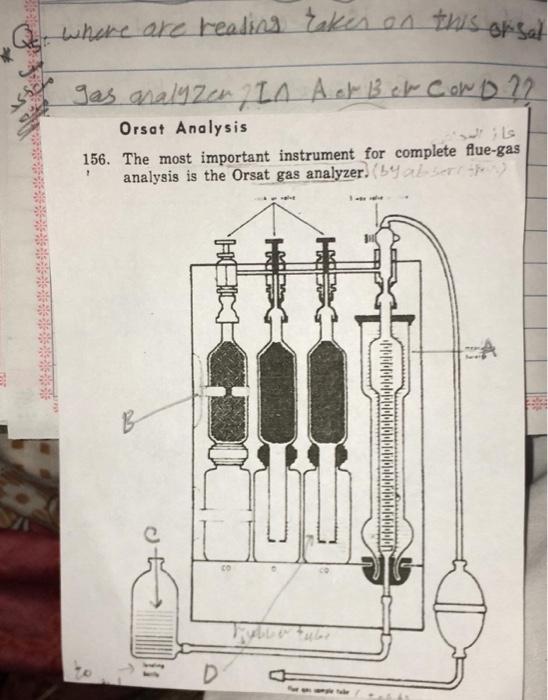 Q. where are reading taken on this orsat
gas analyzer, In A or B or C or D ??
Orsat Analysis
156. The most important instrument for complete flue-gas
analysis is the Orsat gas analyzer. (by absorption)
A
B
C
CO O CO
Rubber tube
leveling
bottle
D
Flue gas sample tube